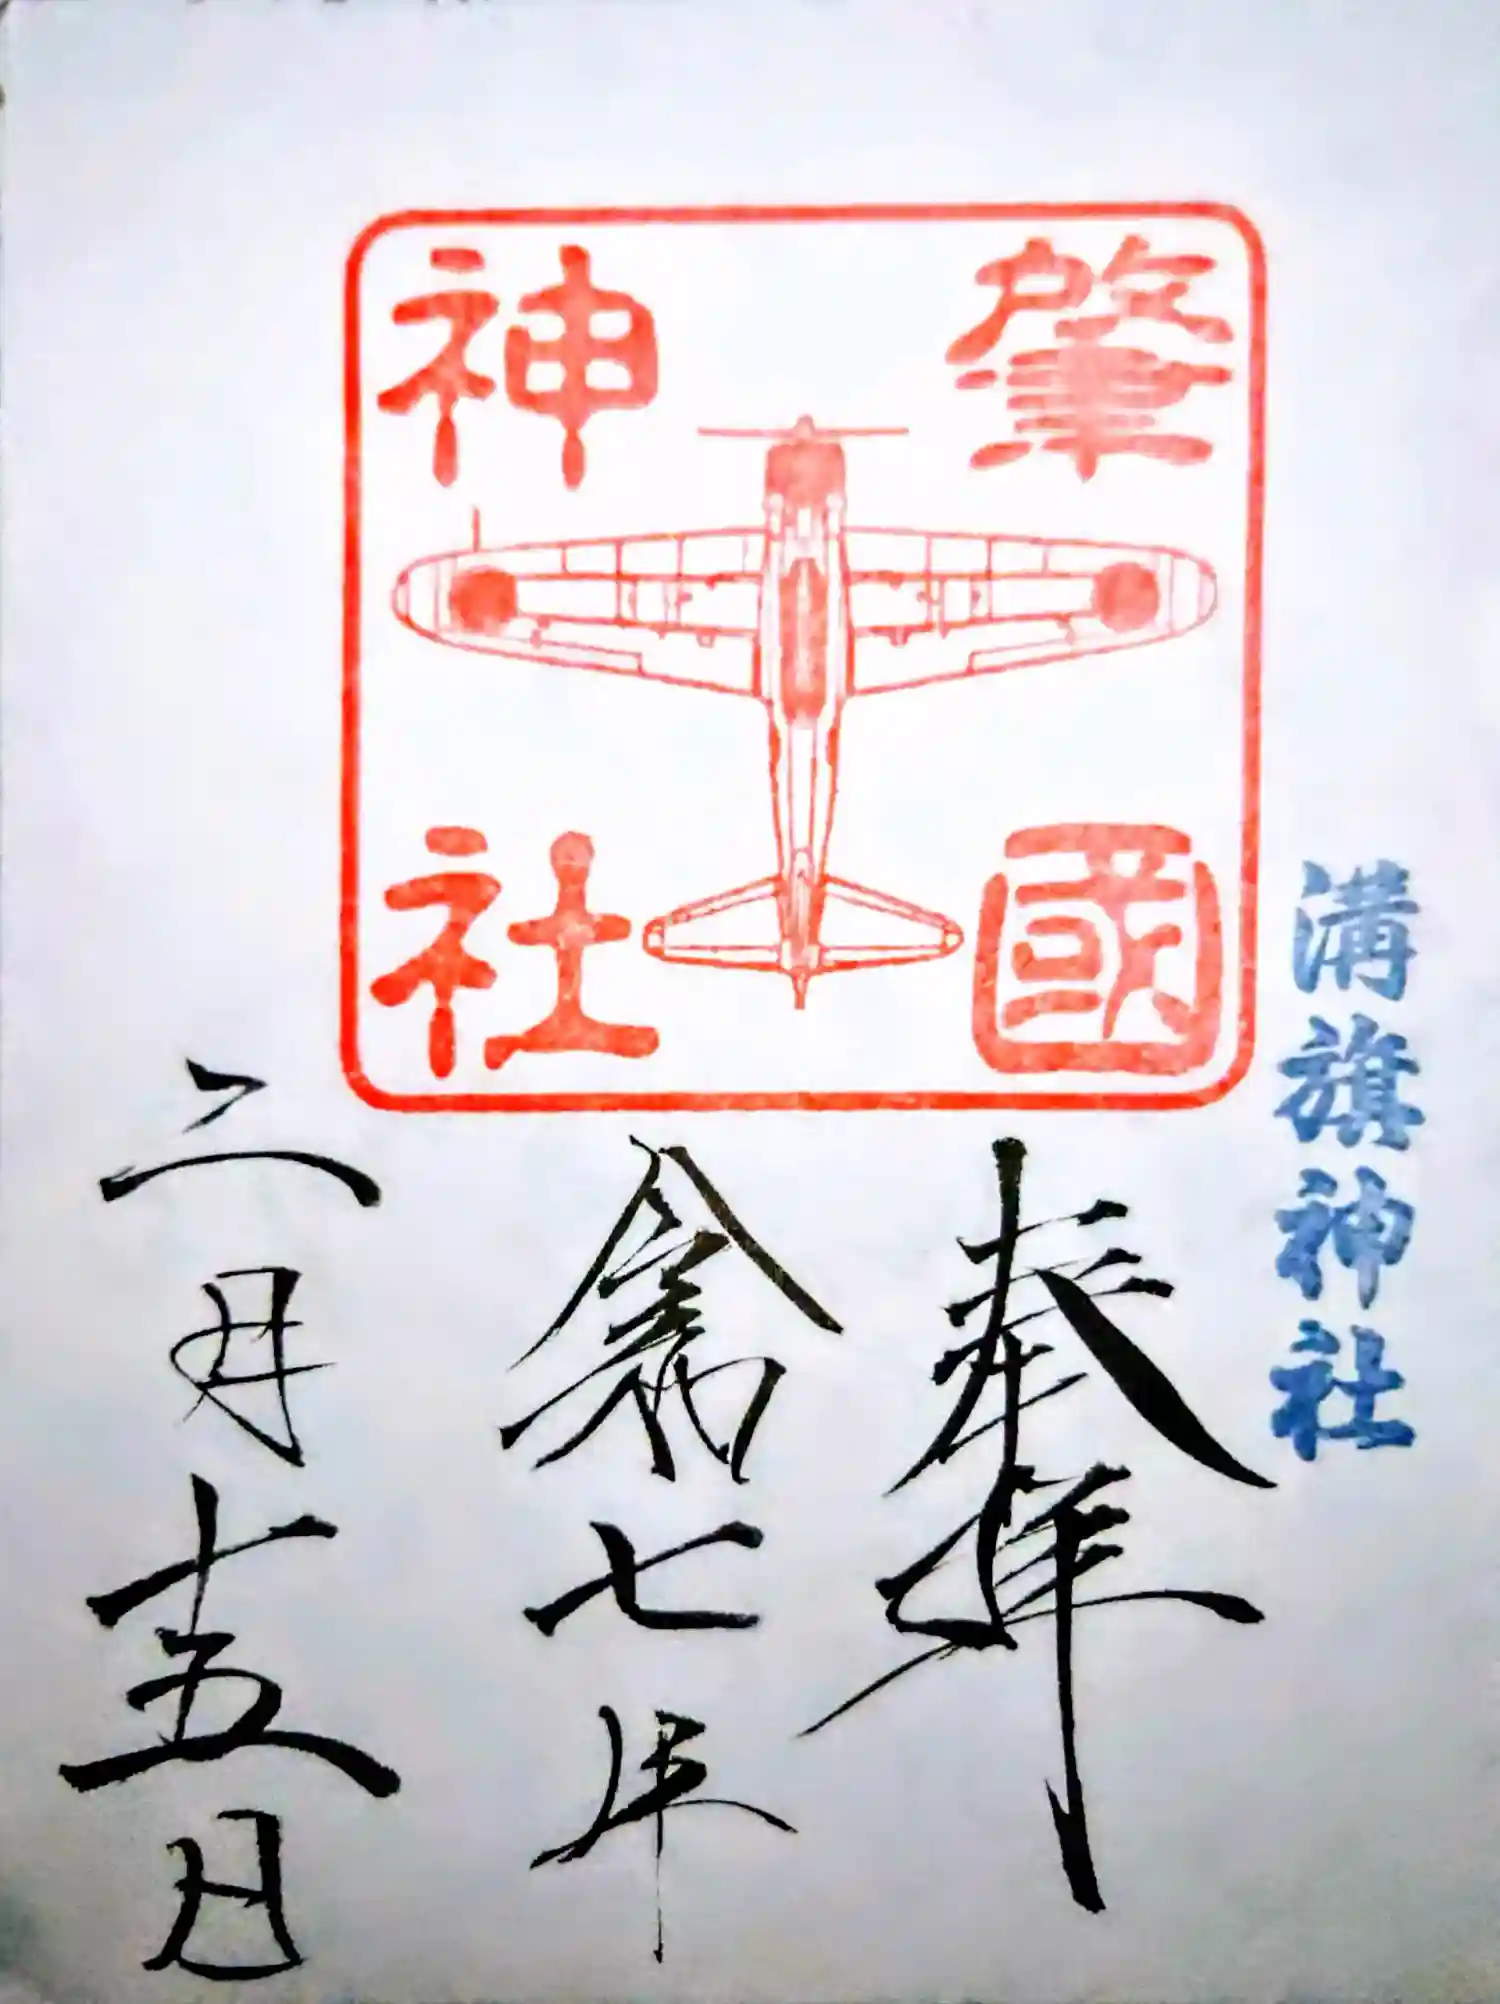 溝旗神社
肇國
神社
奉拝
令和七年
二月十五日